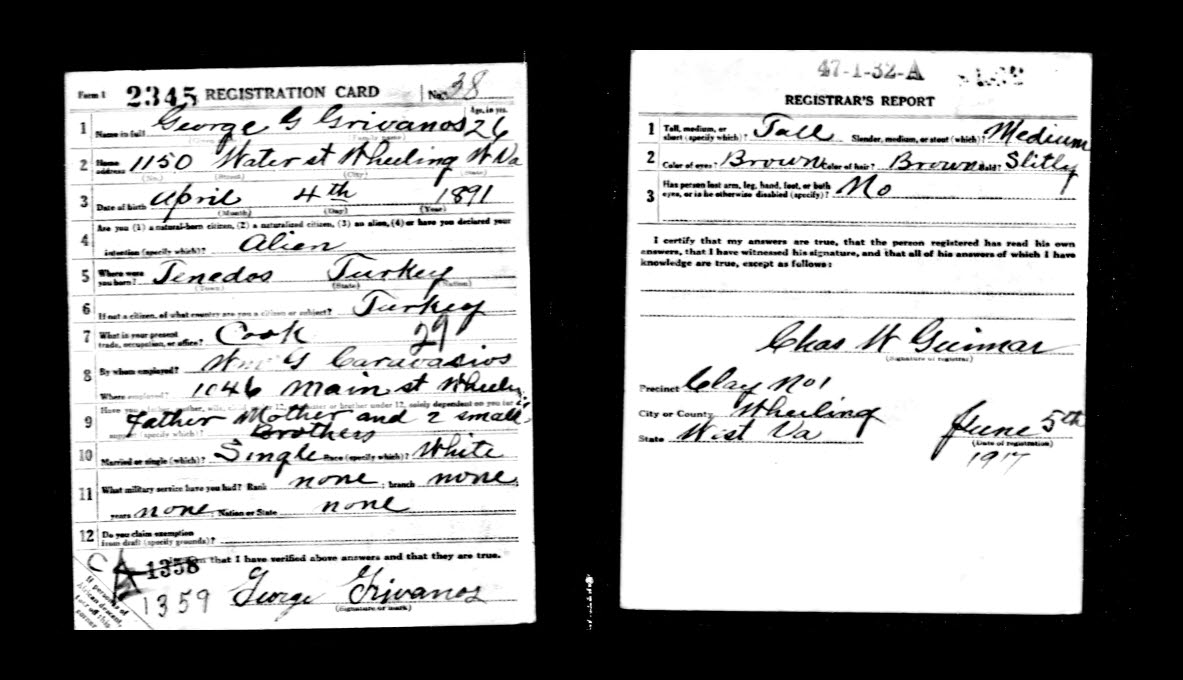 Form 1 2345 REGISTRATION CARD No. 38
1 Name in full George G Grivanos Age, in yrs. 26
(Given name) (Family name)
2 Home address 1150 Water st Wheeling W Va
(No.) (Street) (City) (State)
3 Date of birth April 4th 1891
(Month) (Day) (Year)
4 Are you (1) a natural-born citizen, (2) a naturalized citizen, (3) an alien, (4) or have you declared your
intention (specify which)? Alien
5 Where were you born? Tenedos Turkey
(Town) (State) (Nation)
6 If not a citizen, of what country are you a citizen or subject? Turkey
7 What is your present trade, occupation, or office? Cook 29
8 By whom employed? Wm G Caravasios
Where employed? 1046 Main st Wheeling
9 Have you a father, mother, wife, child under 12, or a sister or brother under 12, solely dependent on you for
support (specify which)? Father Mother and 2 small
Brothers
10 Married or single (which)? Single Race (specify which)? White
11 What military service have you had? Rank none ; branch none ;
years none ; Nation or State none
12 Do you claim exemption from draft (specify grounds)?
that I have verified above answers and that they are true.
1358
1359 George Grivanos
(Signature or mark)
If person is of African descent, tear off this corner
47-1-32-A
REGISTRAR'S REPORT
1 Tall, medium, or short (specify which)? Tall Slender, medium, or stout (which)? Medium
2 Color of eyes? Brown Color of hair? Brown Bald? Slitly
3 Has person lost arm, leg, hand, foot, or both eyes, or is he otherwise disabled (specify)? No
I certify that my answers are true, that the person registered has read his own
answers, that I have witnessed his signature, and that all of his answers of which I have
knowledge are true, except as follows:
Chas W
(Signature of registrar)
Precinct Clay No 1
City or County Wheeling
State West Va
June 5th
(Date of registration)
1917